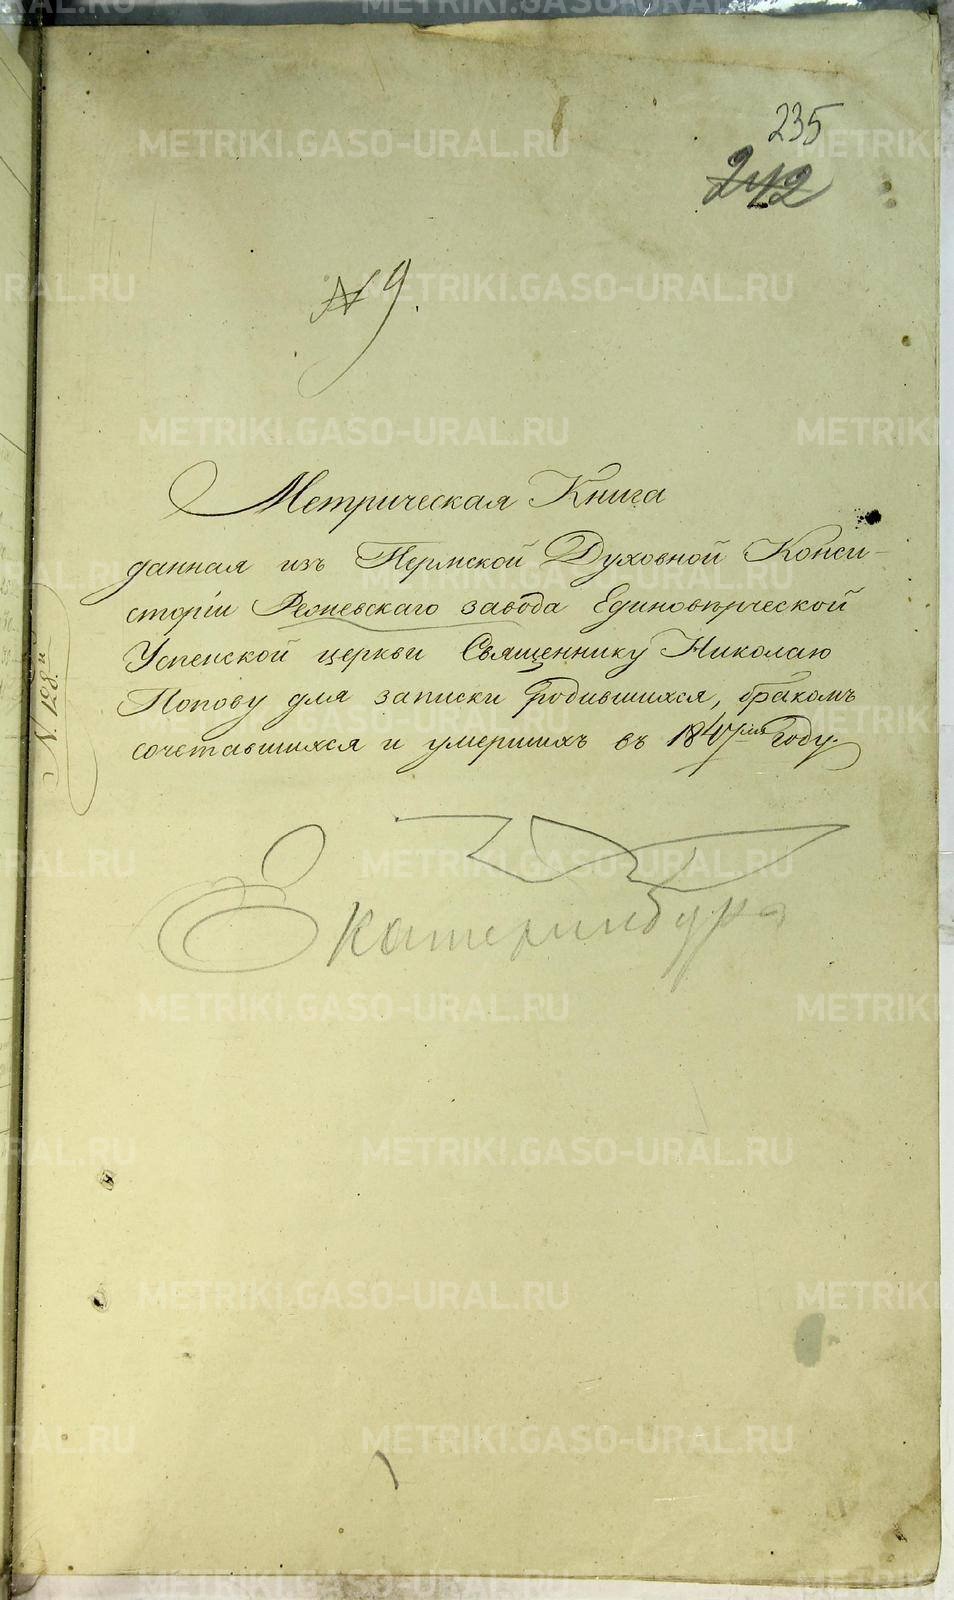 235
242
№ 9.
Метрическая Книга
данная изъ Пермской Духовной Конси-
сторіи Режевскаго завода Единовѣрческой
Успенской церкви Священнику Николаю
Попову для записки родившихся, бракомъ
сочетавшихся и умершихъ въ 1847мъ году.
N. 128.й
Екатеринбурга
METRIKI.GASO-URAL.RU